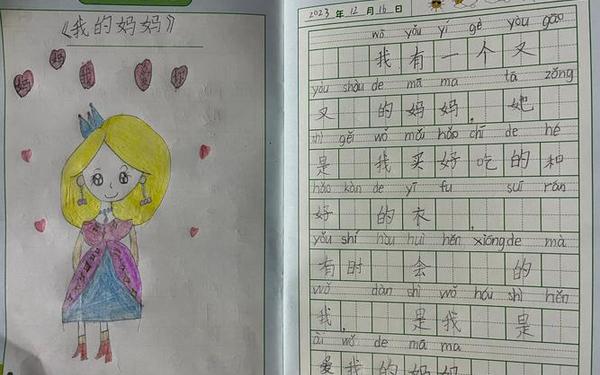 《我的妈妈》
2023 年 12 月 16 日
wǒ yǒu yí gè yòu gāo
我有一个又
yòu shòu de mā ma tā zǒng
又 的妈妈，她
shì gěi wǒ mǎi hǎo chī de hé
是 我买好吃的和
hǎo kàn de yī fu suī rán
好 的衣
yǒu shí hòu huì hěn xiōng de mà
有时 会 的
wǒ dàn shì wǒ hái shì hěn
我， 是我 是
ài wǒ de mā ma
爱我的妈妈